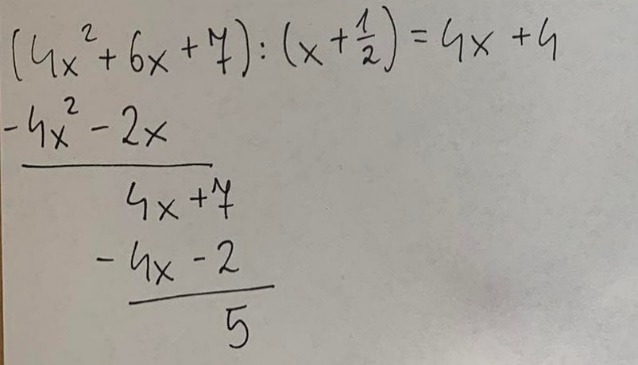 (4x² + 6x + 7) : (x + 1/2) = 4x + 4
- 4x² - 2x
4x + 7
- 4x - 2
5